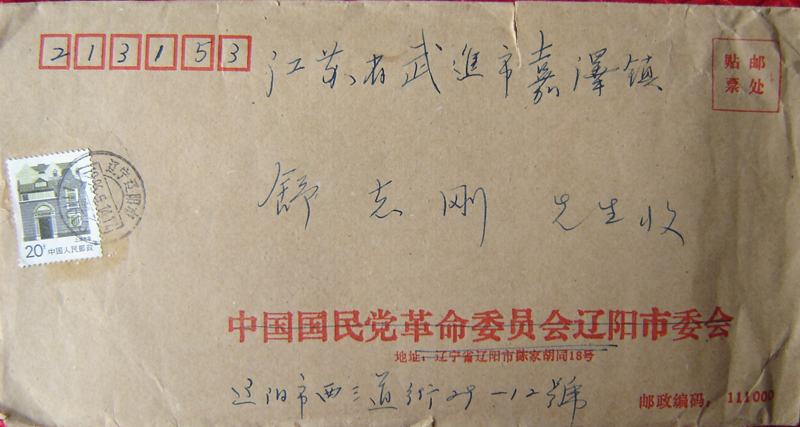 213153
江苏省武進市嘉澤镇
贴邮
票处
舒志刚 先生收
辽宁辽阳
20分 中国人民邮政
上海民居
中国国民党革命委员会辽阳市委会
地址：辽宁省辽阳市陈家胡同18号
辽阳市西三道街29-12號
邮政编码：111000